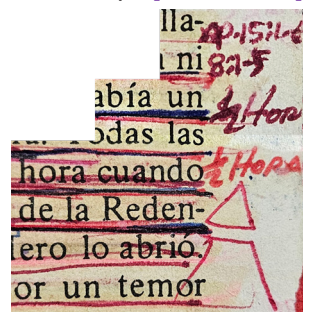 lla-
ni
abía un
odas las
hora cuando
de la Reden-
ero lo abrió.
or un temor
Ap. 15:1-6
8:1-5
½ HORA
½ HORA